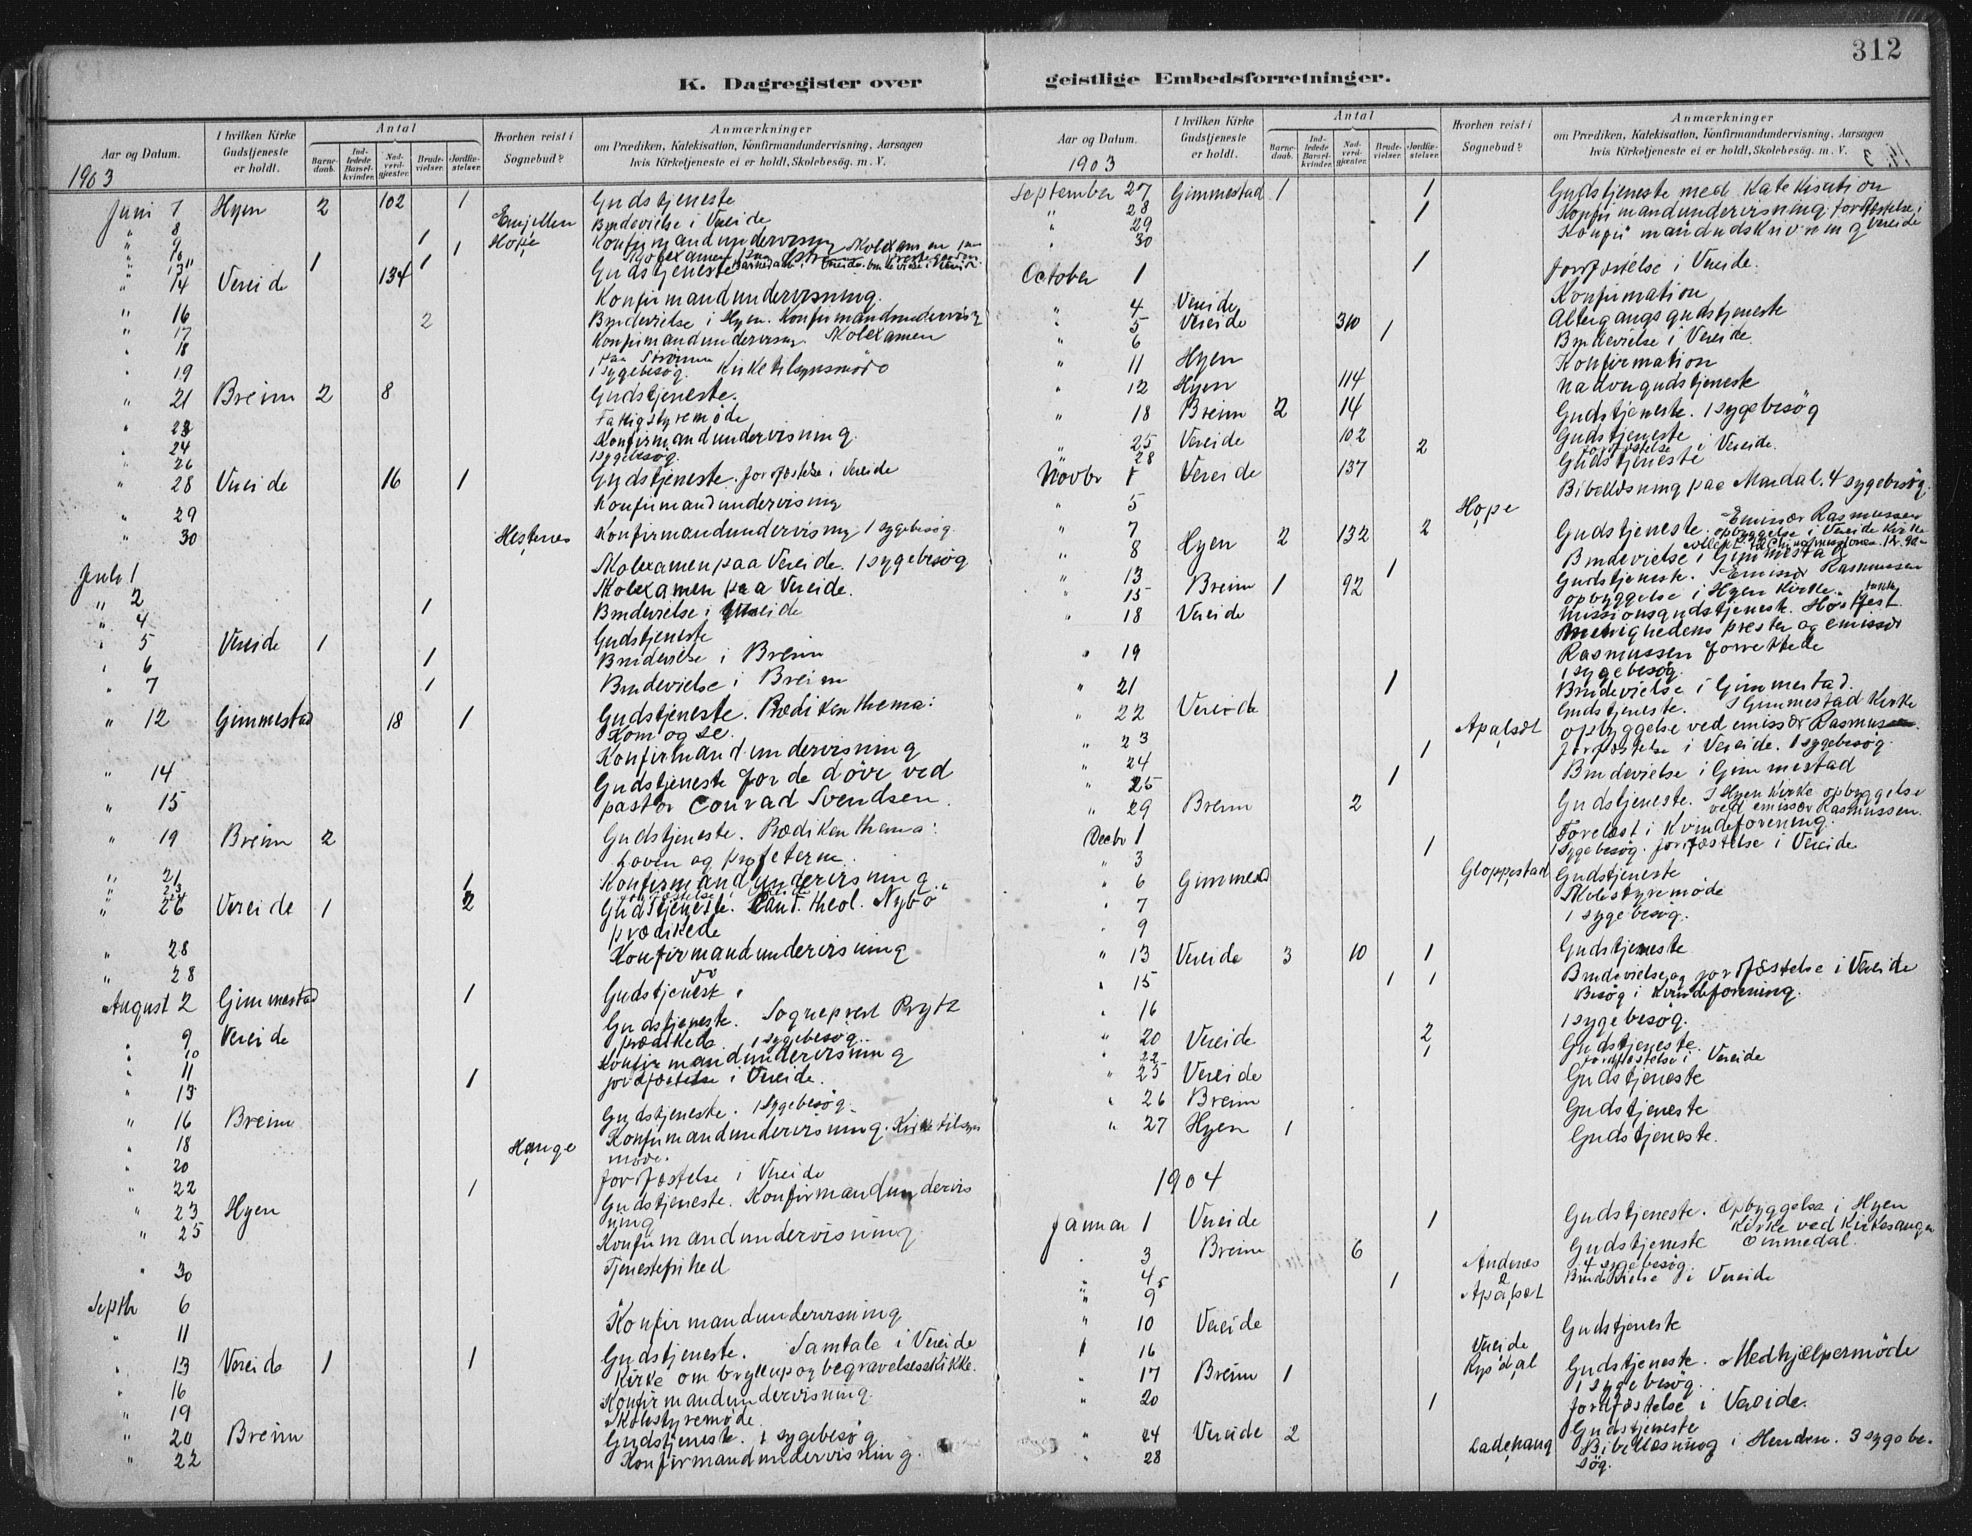 312
K. Dagregister over
Aar og Datum.
I hvilken Kirke Gudstjeneste er holdt.
Antal
Barne-daab.
Ind-ledede Barsel-kvinder.
Nad-verd-gjester.
Brude-vielser.
Jordfæ-stelser.
Hvorhen reist i Sognebud?
Anmærkninger
om Prædiken, Katekisation, Konfirmandundervisning, Aarsagen
hvis Kirketjeneste ei er holdt, Skolebesøg. m. V.
1903
Juni 7 Hyen 2 102 1 Gudstjeneste
" 8 Brudevielse i Vereide
" 9 1 Hope Konfirmandundervisning
" 14 Vereide 134 Gudstjeneste
Konfirmandundervisning.
" 16 2 Brudevielse i Hyen. Konfirmandundervisng
" 17 Konfirmandundervisng. Skolexamen
" 18
" 19 1 Sygebesøg. Kirketilsynsmøde
" 21 Breim 2 8 Gudstjeneste.
" 23 Fattigstyremøde
" 24 Konfirmandundervisning.
" 26 1 sygebesøg.
" 28 Vereide 16 1 Gudstjeneste. Jordfæstelse i Vereide
" 29 Konfirmandundervisning
" 30 Hestenes Konfirmandundervisning 1 sygebesøg.
Skolexamen paa Vereide. 1 sygebesøg
Juli 1 Skolexamen paa Vereide.
" 2
" 4 1 Brudevielse i Vereide
" 5 Vereide 1 Gudstjeneste
" 6 1 Brudevielse i Breim
" 7 1 Brudevielse i Breim
" 12 Gimmestad 18 1 Gudstjeneste. Prædiken thema:
Kom og se.
" 14 Konfirmandundervisning
" 15 Gudstjeneste for de døve ved
pastor Conrad Svendsen.
" 19 Breim 2 Gudstjeneste. Prædiken thema:
Loven og profeterne.
" 21 1 Konfirmandundervisning.
" 23
" 26 Vereide 1 2 Gudstjeneste. Cand. theol. Nybø
prædikede
" 28 Konfirmandundervisning
" 28
August 2 Gimmestad 1 Gudstjeneste
" 9 Vereide Gudstjeneste. Sogneprest Prytz
prædikede. 1 sygebesøg.
" 10 Konfirmandundervisning
" 11
" 13 1 Jordfæstelse i Vereide.
" 16 Breim Gudstjeneste. 1 sygebesøg.
" 18 Hauge Konfirmandundervisning. Kirketilsyns
møde.
" 20
" 22 1 Jordfæstelse i Vereide
" 23 Hyen Gudstjeneste. Konfirmandundervis
ning
" 25 Konfirmandundervisning
" 30 Tjenestefrihed
Septbr 6
" 11 Konfirmandundervisning
" 13 Vereide 1 1 Gudstjeneste. Samtale i Vereide
Kirke om bryllup og begravelsesskikke.
" 16 Konfirmandundervisning.
" 19 Skolestyremøde.
" 20 Breim Gudstjeneste. 1 sygebesøg
" 22 Konfirmandundervisning.
geistlige Embedsforretninger.
Aar og Datum.
I hvilken Kirke Gudstjeneste er holdt.
Antal
Barne-daab.
Ind-ledede Barsel-kvinder.
Nad-verd-gjester.
Brude-vielser.
Jordfæ-stelser.
Hvorhen reist i Sognebud?
Anmærkninger
om Prædiken, Katekisation, Konfirmandundervisning, Aarsagen
hvis Kirketjeneste ei er holdt, Skolebesøg. m. V.
1903
September 27 Gimmestad 1 1 Gudstjeneste med Katekisation
" 28 1 Konfirmandundervisning. Jordfæstelse i
Vereide
" 29 Konfirmandudskrivning
" 30
October 1 1 Jordfæstelse i Vereide.
" 4 Vereide Konfirmation
" 5 Vereide 310 Altergangsgudstjeneste
" 6 1 Brudevielse i Vereide
" 11 Hyen Konfirmation
" 12 Hyen 114 Nadvergudstjeneste
" 18 Breim 2 14 Gudstjeneste. 1 sygebesøg
" 25 Vereide 102 Gudstjeneste
" 28 2 Jordfæstelse i Vereide.
Novbr 1 Vereide 137 Gudstjeneste
" 5 Bibellæsning paa Mardal. 4 sygebesøg.
" 7 Hope
" 8 Hyen 2 132 2 Gudstjeneste. Emissær Rasmussen
opbyggelse i Vereide Kirke
" 13 1 Brudevielse i Gimmestad
" 15 Breim 1 92 Gudstjeneste. Emissær Rasmussen
opbyggelse i Hyen Kirke.
" 18 Vereide Missionsgudstjeneste. Høstfest
Menighedens prester og emissær
" 19 Rasmussen forrettede
1 sygebesøg.
" 21 1 Brudevielse i Gimmestad.
" 22 Vereide Gudstjeneste. I Gimmestad Kirke
opbyggelse ved emissær Rasmussen
" 23 Apalsæt
" 24 1 Jordfæstelse i Vereide. 1 sygebesøg.
" 25 1 Brudevielse i Gimmestad
" 29 Breim 2 Gudstjeneste. I Hyen Kirke opbyggelse
ved emissær Rasmussen.
Decbr 1 Forelæst i Kvindeforening.
" 3 1 1 Sygebesøg. Jordfæstelse i Vereide
" 6 Gimmestad Gloppestad Gudstjeneste
" 7 Skolestyremøde
" 9 1 sygebesøg.
" 13 Vereide 3 10 1 Gudstjeneste
" 15 1 1 Brudevielse og jordfæstelse i Vereide
Besøg i Kvindeforening.
" 16 1 sygebesøg.
" 20 Vereide 2 Gudstjeneste.
" 22 1 Jordfæstelse i Vereide
" 25 Vereide Gudstjeneste
" 26 Breim Gudstjeneste
" 27 Hyen 1 Gudstjeneste.
1904
Januar 1 Vereide 1 Gudstjeneste. Opbyggelse i Hyen
Kirke ved Kirkesanger
Ommedal.
" 3 Breim 6 Gudstjeneste
" 4 Andenes 4 sygebesøg.
" 5 1 Brudevielse i Vereide
" 9 Apalsæt
" 10 Vereide Gudstjeneste
" 16 Vereide
" 17 Breim 1 Gudstjeneste. Medhjælpermøde
1 sygebesøg.
" 20 1 Jordfæstelse i Vereide.
" 24 Vereide 2 Gudstjeneste
" 28 Ladehaug Bibellæsning i Henden. 3 sygebe-
søg.